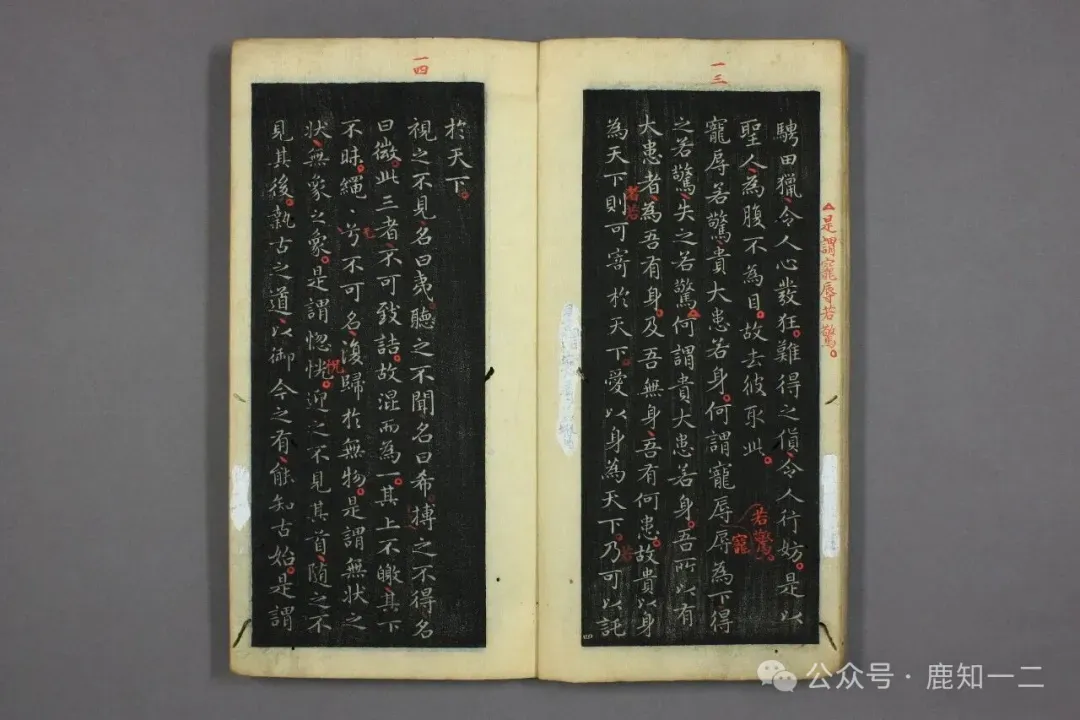 一三
是謂寵辱若驚。
騁田獵、令人心發狂。難得之貨、令人行妨。是以
聖人、為腹不為目。故去彼取此。
寵辱若驚、貴大患若身。何謂寵辱辱為下得
若驚。
寵
之若驚、失之若驚。何謂貴大患若身。吾所以有
大患者、為吾有身。及吾無身、吾有何患。故貴以身
者若
為天下則可寄於天下。愛以身為天下。乃可以託
若
一四
於天下。
視之不見、名曰夷聽之不聞名曰希搏之不得名
曰微。此三者、不可致詰。故混而為一。其上不皦、其下
不昧。繩〻兮不可名、復歸於無物。是謂無状之
状、無象之象。是謂惚恍。迎之不見其首、随之不
怳
見其後。執古之道、以御今之有、能知古始。是謂
公众号·鹿知一二